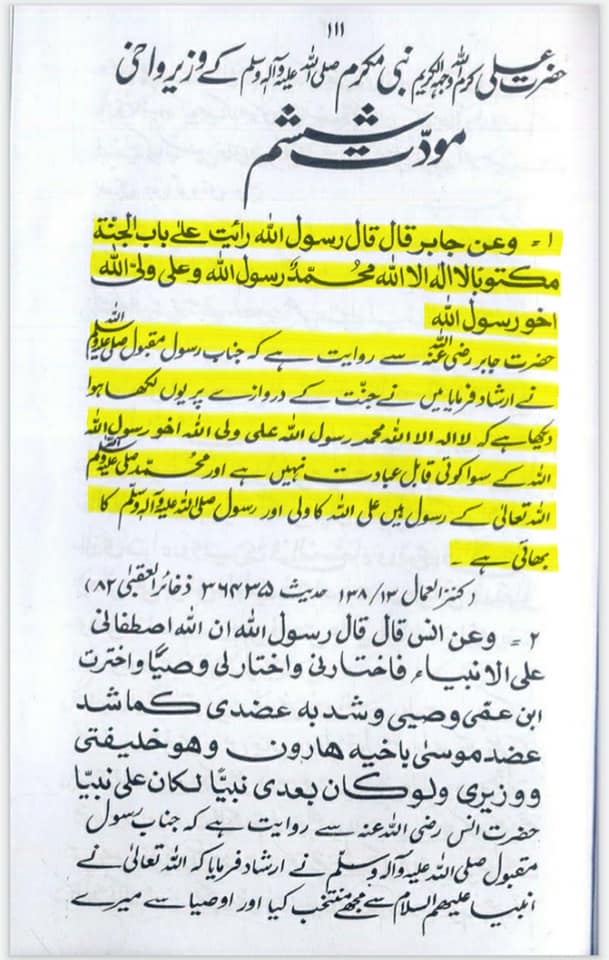 ۱۱۱
حضرت علی کرم اللہ وجہہ الکریم نبی مکرم صلی اللہ علیہ وآلہ وسلم کے وزیر واخی
مودّت ششم
۱= وعن جابر قال قال رسول الله رائيت على باب الجنة
مكتوبا لا اله الا الله محمد رسول الله وعلى ولى الله
اخو رسول الله
حضرت جابر رضی اللہ عنہ سے روایت ہے کہ جناب رسول مقبول صلی اللہ علیہ وسلم
نے ارشاد فرمایا میں نے جنّت کے دروازے پر یوں لکھا ہوا
دیکھا ہے کہ لا الہ الا اللہ محمد رسول اللہ علی ولی اللہ اخو رسول اللہ
اللہ کے سوا کوئی قابل عبادت نہیں ہے اور محمّد صلی اللہ علیہ وسلم
اللہ تعالیٰ کے رسول ہیں علی اللہ کا ولی اور رسول صلی اللہ علیہ وآلہ وسلّم کا
بھائی ہے ۔
(کنز العمال ۱۳/۱۳۸ حدیث ۳۶۴۳۵ ذخائر العقبیٰ ۸۲)
۲= وعن انس قال قال رسول الله ان الله اصطفانى
على الانبياء فاختارنى واختار لى وصيّا واخترت
ابن عمّى وصيى وشد به عضدى كما شد
عضد موسىٰ باخيه هارون وهو خليفتى
ووزيرى ولو كان بعدى نبيّا لكان على نبيّا
حضرت انس رضی اللہ عنہ سے روایت ہے کہ جناب رسول
مقبول صلی اللہ علیہ وآلہ وسلّم نے ارشاد فرمایا کہ اللہ تعالیٰ نے
انبیا علیھم السلام سے مجھے منتخب کیا اور اوصیا سے میرے